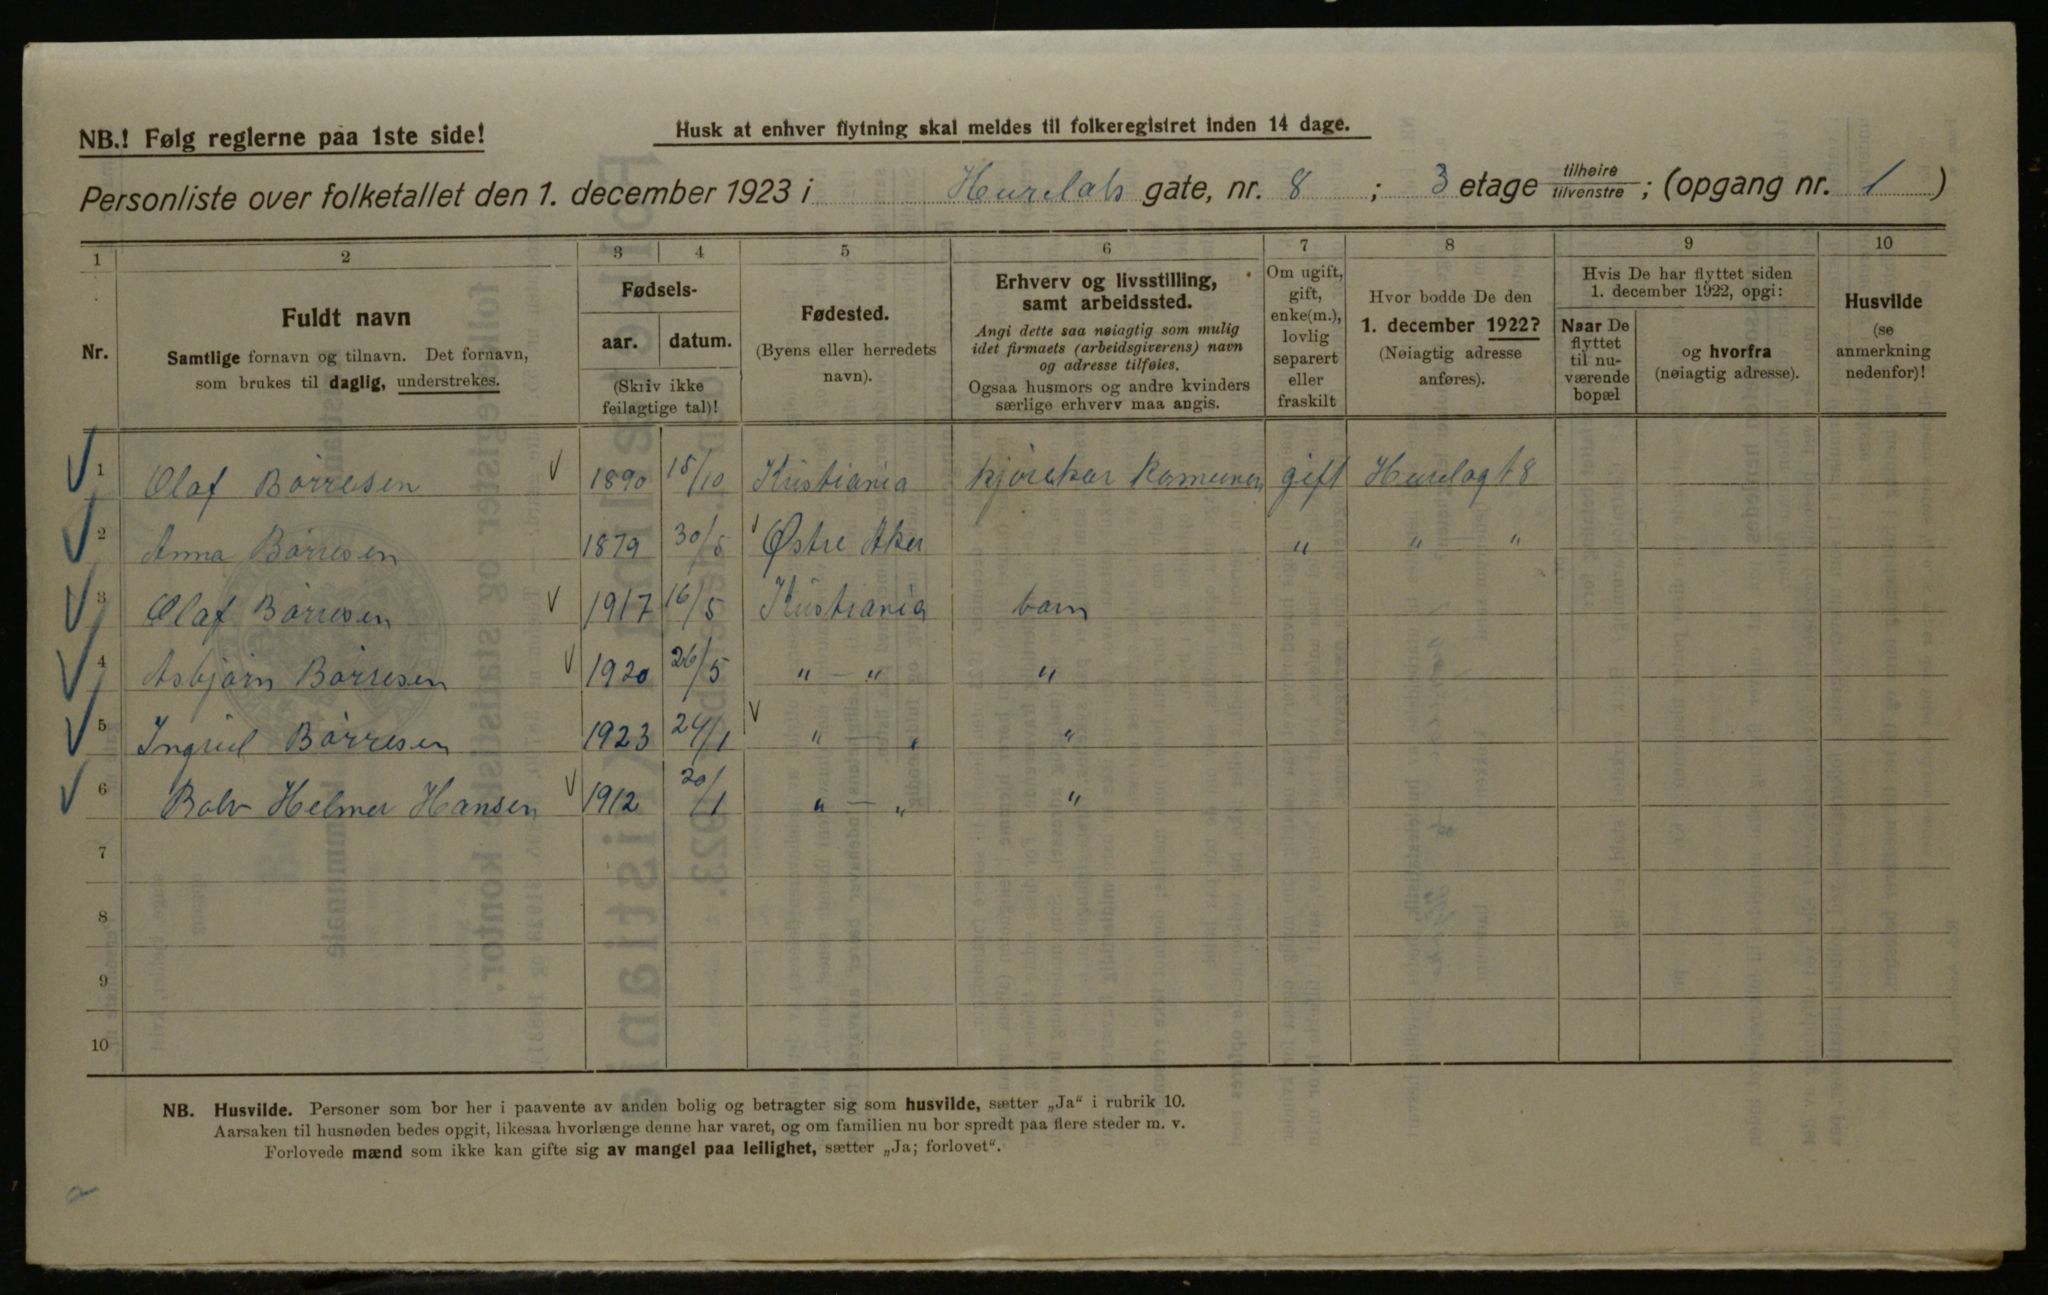 NB.! Følg reglerne paa 1ste side!
Husk at enhver flytning skal meldes til folkeregistret inden 14 dage.
Personliste over folketallet den 1. december 1923 i Hurdals gate, nr. 8 ; 3 etage tilhøire tilvenstre ; (opgang nr. 1 )
1 2 3 4 5 6 7 8 9 10
Nr.
Fuldt navn
Samtlige fornavn og tilnavn. Det fornavn,
som brukes til daglig, understrekes.
Fødsels-
aar. datum.
(Skriv ikke
feilagtige tal)!
Fødested.
(Byens eller herredets
navn).
Erhverv og livsstilling,
samt arbeidssted.
Angi dette saa nøiagtig som mulig
idet firmaets (arbeidsgiverens) navn
og adresse tilføies.
Ogsaa husmors og andre kvinders
særlige erhverv maa angis.
Om ugift,
gift,
enke(m.),
lovlig
separert
eller
fraskilt
Hvor bodde De den
1. december 1922?
(Nøiagtig adresse
anføres).
Hvis De har flyttet siden
1. december 1922, opgi:
Naar De
flyttet
til nu-
værende
bopæl
og hvorfra
(nøiagtig adresse).
Husvilde
(se
anmerkning
nedenfor)!
1 Olaf Börresen 1890 15/10 Kristiania kjörekar gift 8
2 Anna Börresen 1879 30/5 Østre Aker " " "
3 Olaf Börresen 1917 16/5 Kristiania barn
4 Asbjörn Börresen 1920 26/5 " — " "
5 Ingrid Börresen 1923 24/1 " — " "
6 Helmer Hansen 1912 20/1 " — " "
7
8
9
10
NB. Husvilde. Personer som bor her i paavente av anden bolig og betragter sig som husvilde, sætter „Ja“ i rubrik 10.
Aarsaken til husnøden bedes opgit, likesaa hvorlænge denne har varet, og om familien nu bor spredt paa flere steder m. v.
Forlovede mænd som ikke kan gifte sig av mangel paa leilighet, sætter „Ja; forlovet“.